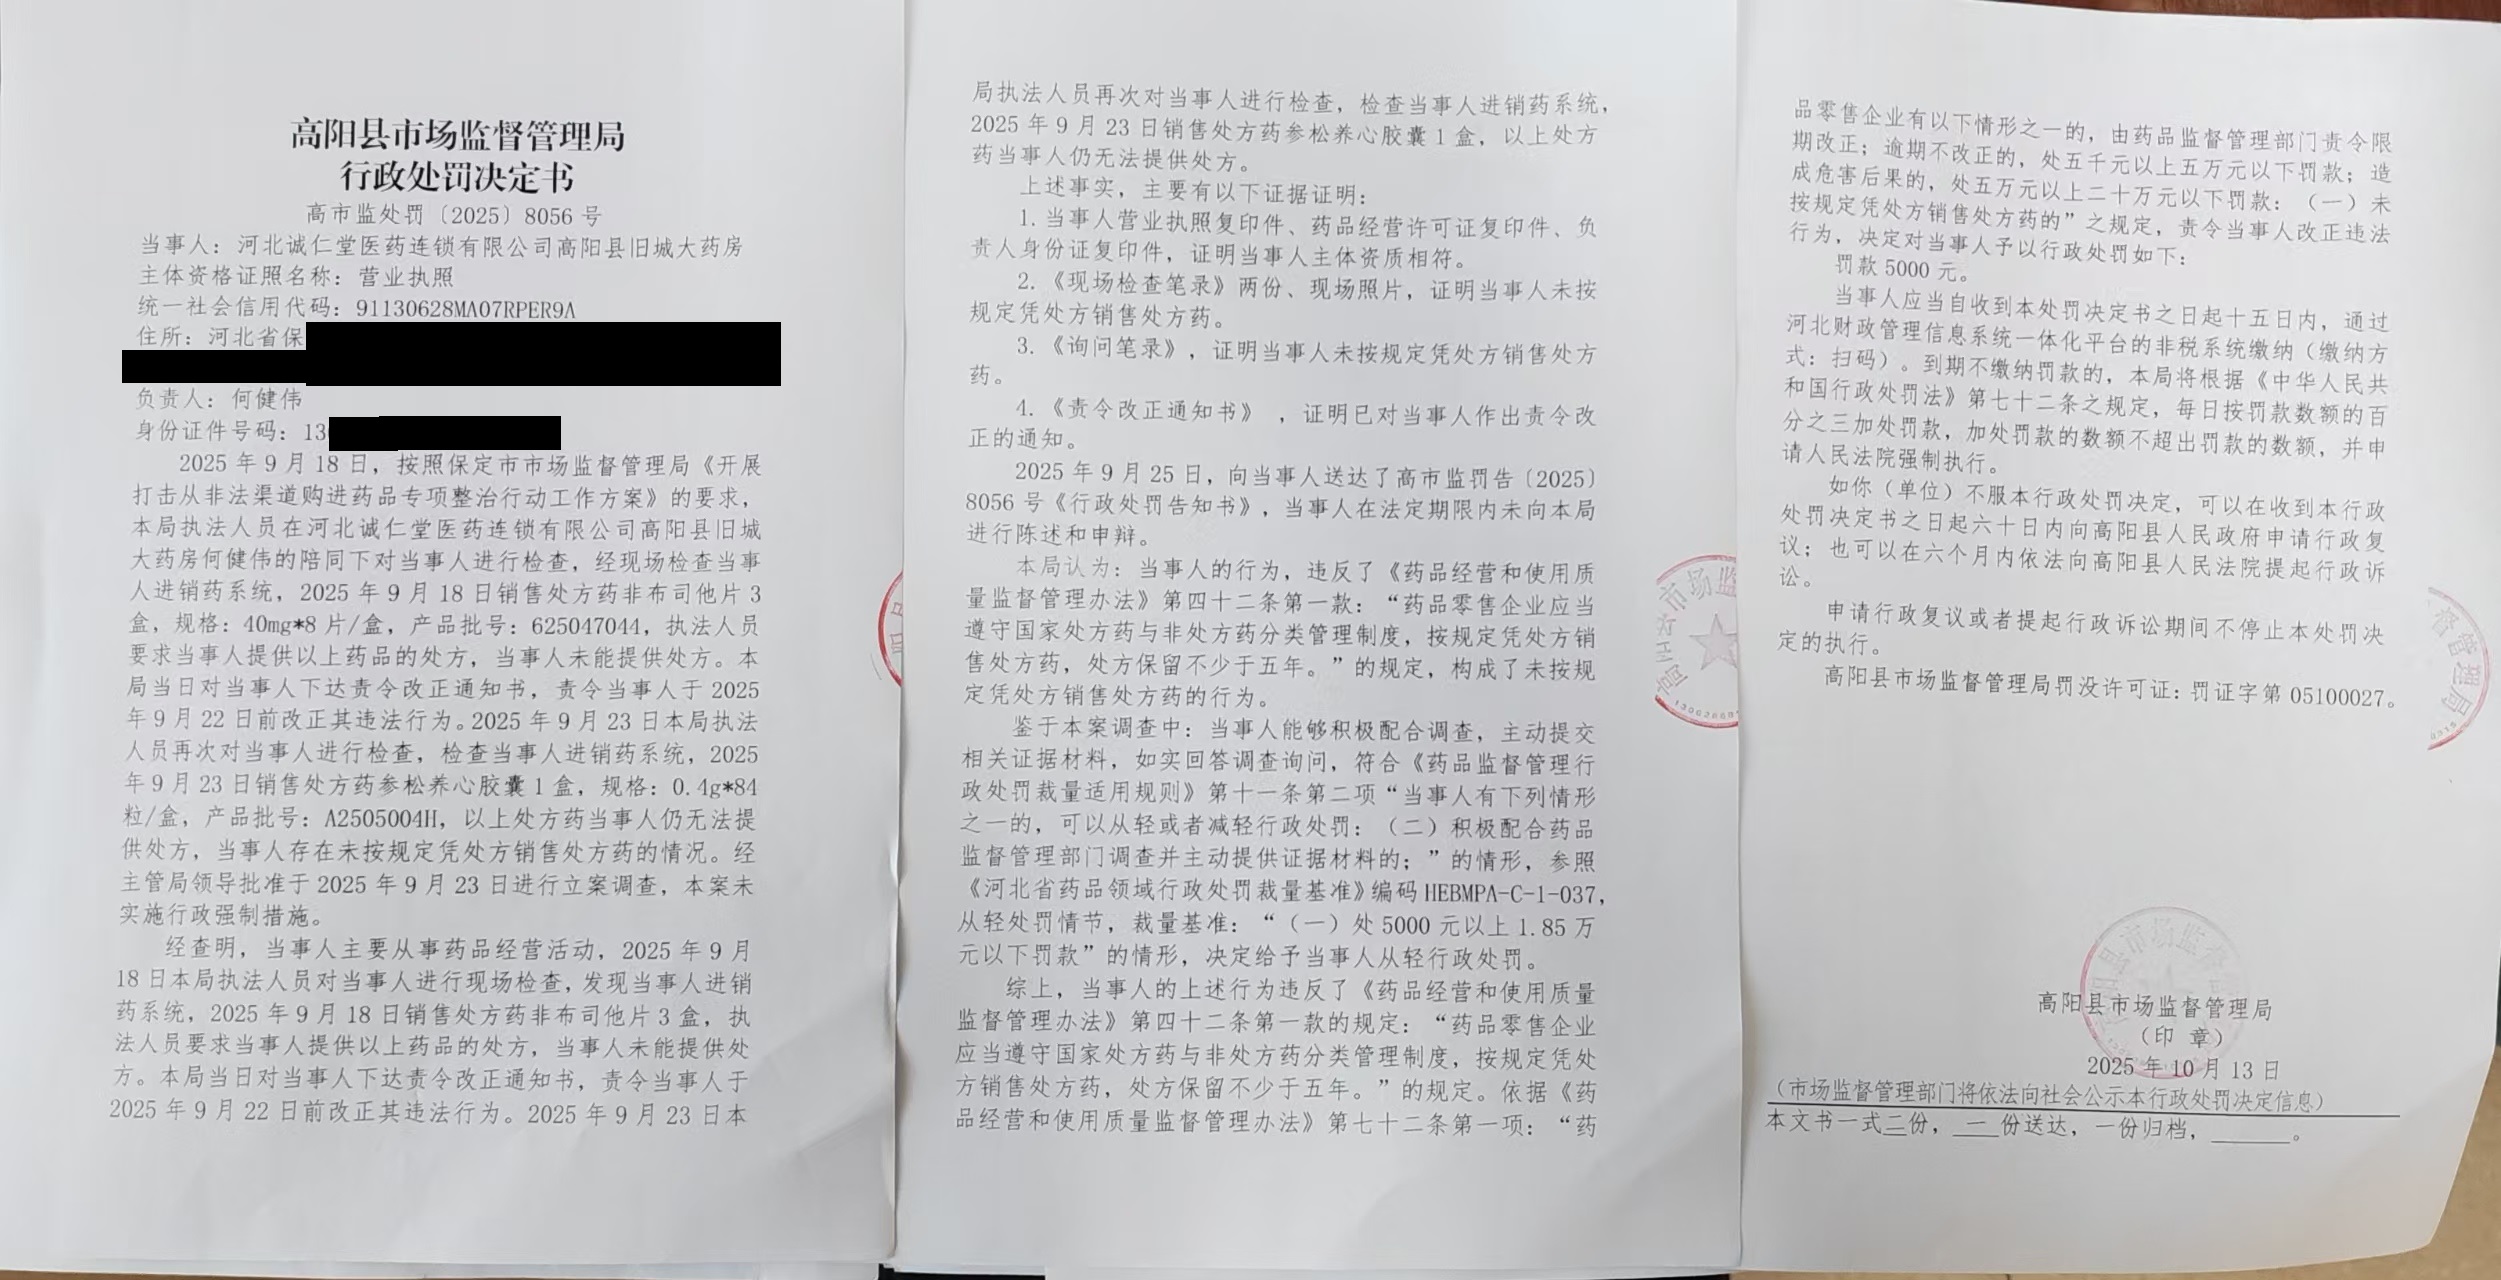 高阳县市场监督管理局
行政处罚决定书
高市监处罚〔2025〕8056号
当事人：河北诚仁堂医药连锁有限公司高阳县旧城大药房
主体资格证照名称：营业执照
统一社会信用代码：91130628MA07RPER9A
住所：河北省保
负责人：何健伟
身份证件号码：13
2025年9月18日，按照保定市市场监督管理局《开展
打击从非法渠道购进药品专项整治行动工作方案》的要求，
本局执法人员在河北诚仁堂医药连锁有限公司高阳县旧城
大药房何健伟的陪同下对当事人进行检查，经现场检查当事
人进销药系统，2025年9月18日销售处方药非布司他片3
盒，规格：40mg*8片/盒，产品批号：625047044，执法人员
要求当事人提供以上药品的处方，当事人未能提供处方。本
局当日对当事人下达责令改正通知书，责令当事人于2025
年9月22日前改正其违法行为。2025年9月23日本局执法
人员再次对当事人进行检查，检查当事人进销药系统，2025
年9月23日销售处方药参松养心胶囊1盒，规格：0.4g*84
粒/盒，产品批号：A2505004H，以上处方药当事人仍无法提
供处方，当事人存在未按规定凭处方销售处方药的情况。经
主管局领导批准于2025年9月23日进行立案调查，本案未
实施行政强制措施。
经查明，当事人主要从事药品经营活动，2025年9月
18日本局执法人员对当事人进行现场检查，发现当事人进销
药系统，2025年9月18日销售处方药非布司他片3盒，执
法人员要求当事人提供以上药品的处方，当事人未能提供处
方。本局当日对当事人下达责令改正通知书，责令当事人于
2025年9月22日前改正其违法行为。2025年9月23日本
局执法人员再次对当事人进行检查，检查当事人进销药系统，
2025年9月23日销售处方药参松养心胶囊1盒，以上处方
药当事人仍无法提供处方。
上述事实，主要有以下证据证明：
1.当事人营业执照复印件、药品经营许可证复印件、负
责人身份证复印件，证明当事人主体资质相符。
2.《现场检查笔录》两份、现场照片，证明当事人未按
规定凭处方销售处方药。
3.《询问笔录》，证明当事人未按规定凭处方销售处方
药。
4.《责令改正通知书》，证明已对当事人作出责令改
正的通知。
2025年9月25日，向当事人送达了高市监罚告〔2025〕
8056号《行政处罚告知书》，当事人在法定期限内未向本局
进行陈述和申辩。
本局认为：当事人的行为，违反了《药品经营和使用质
量监督管理办法》第四十二条第一款：“药品零售企业应当
遵守国家处方药与非处方药分类管理制度，按规定凭处方销
售处方药，处方保留不少于五年。”的规定，构成了未按规
定凭处方销售处方药的行为。
鉴于本案调查中：当事人能够积极配合调查，主动提交
相关证据材料，如实回答调查询问，符合《药品监督管理行
政处罚裁量适用规则》第十一条第二项“当事人有下列情形
之一的，可以从轻或者减轻行政处罚：（二）积极配合药品
监督管理部门调查并主动提供证据材料的；”的情形，参照
《河北省药品领域行政处罚裁量基准》编码HEBMPA-C-1-037，
从轻处罚情节，裁量基准：“（一）处5000元以上1.85万
元以下罚款”的情形，决定给予当事人从轻行政处罚。
综上，当事人的上述行为违反了《药品经营和使用质量
监督管理办法》第四十二条第一款的规定：“药品零售企业
应当遵守国家处方药与非处方药分类管理制度，按规定凭处
方销售处方药，处方保留不少于五年。”的规定。依据《药
品经营和使用质量监督管理办法》第七十二条第一项：“药
品零售企业有以下情形之一的，由药品监督管理部门责令限
期改正；逾期不改正的，处五千元以上五万元以下罚款；造
成危害后果的，处五万元以上二十万元以下罚款：（一）未
按规定凭处方销售处方药的”之规定，责令当事人改正违法
行为，决定对当事人予以行政处罚如下：
罚款5000元。
当事人应当自收到本处罚决定书之日起十五日内，通过
河北财政管理信息系统一体化平台的非税系统缴纳（缴纳方
式：扫码）。到期不缴纳罚款的，本局将根据《中华人民共
和国行政处罚法》第七十二条之规定，每日按罚款数额的百
分之三加处罚款，加处罚款的数额不超出罚款的数额，并申
请人民法院强制执行。
如你（单位）不服本行政处罚决定，可以在收到本行政
处罚决定书之日起六十日内向高阳县人民政府申请行政复
议；也可以在六个月内依法向高阳县人民法院提起行政诉
讼。
申请行政复议或者提起行政诉讼期间不停止本处罚决
定的执行。
高阳县市场监督管理局罚没许可证：罚证字第05100027。
高阳县市场监督管理局
（印 章）
2025年10月13日
（市场监督管理部门将依法向社会公示本行政处罚决定信息）
本文书一式二份，一份送达，一份归档，